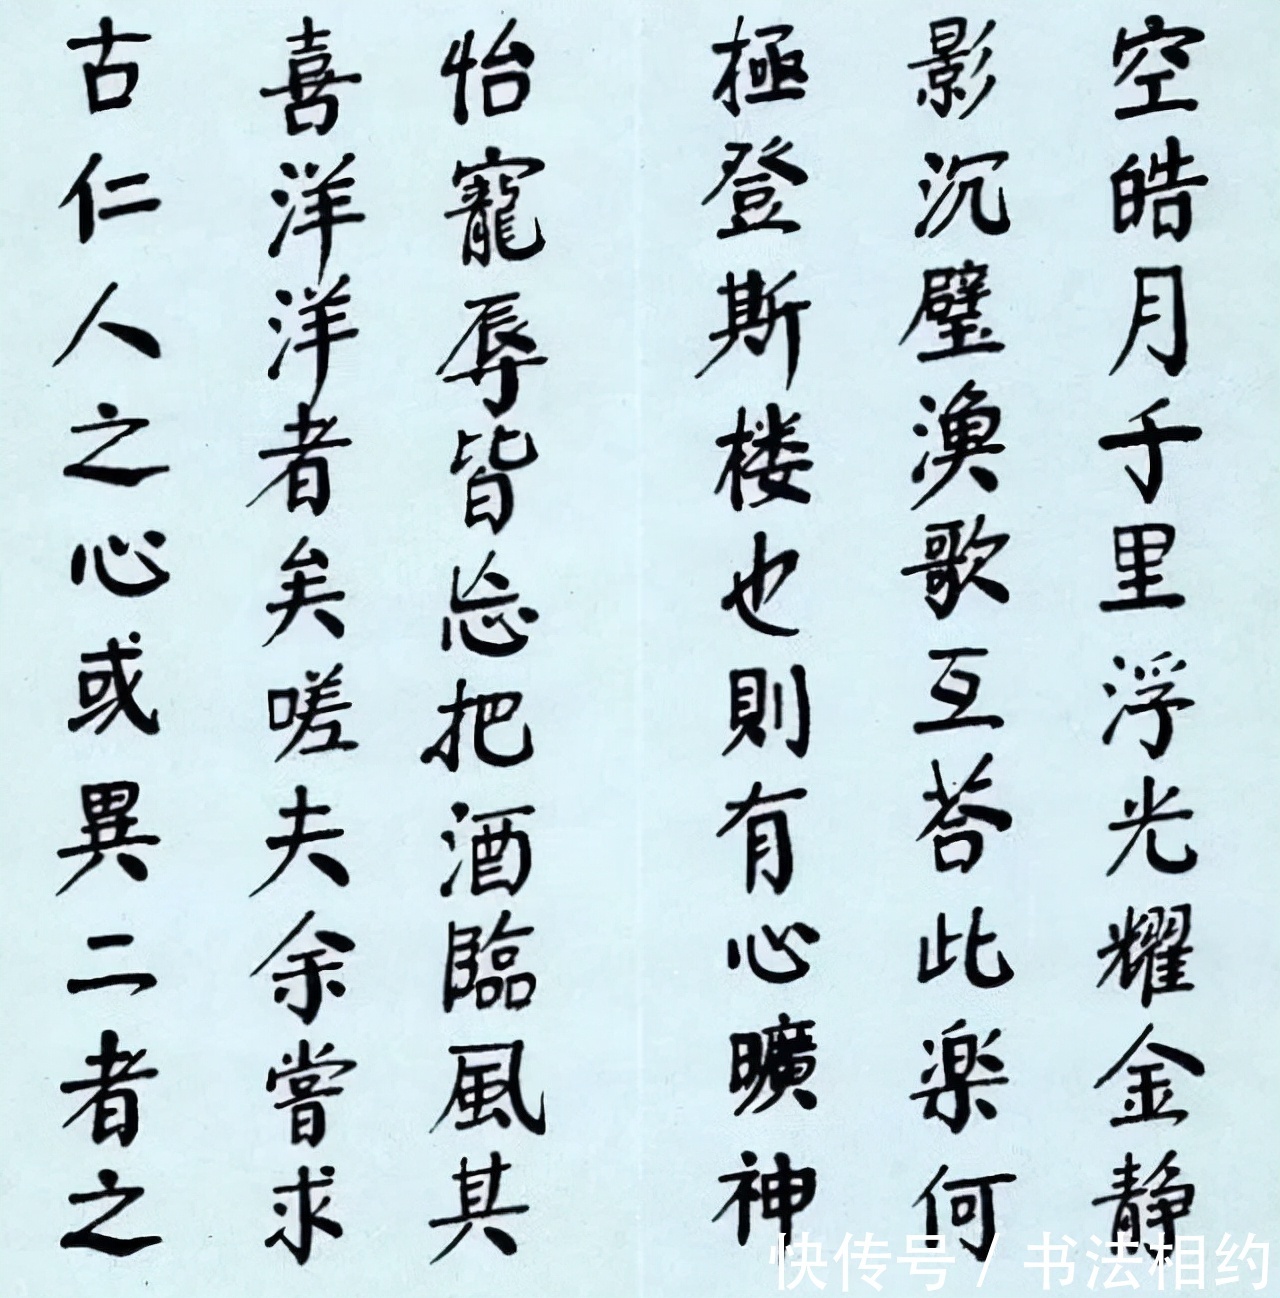 空皓月千里浮光耀金静
影沉璧渔歌互荅此楽何
極登斯楼也則有心曠神
怡寵辱皆忘把酒臨風其
喜洋洋者矣嗟夫余嘗求
古仁人之心或異二者之
快传号 / 书法相约